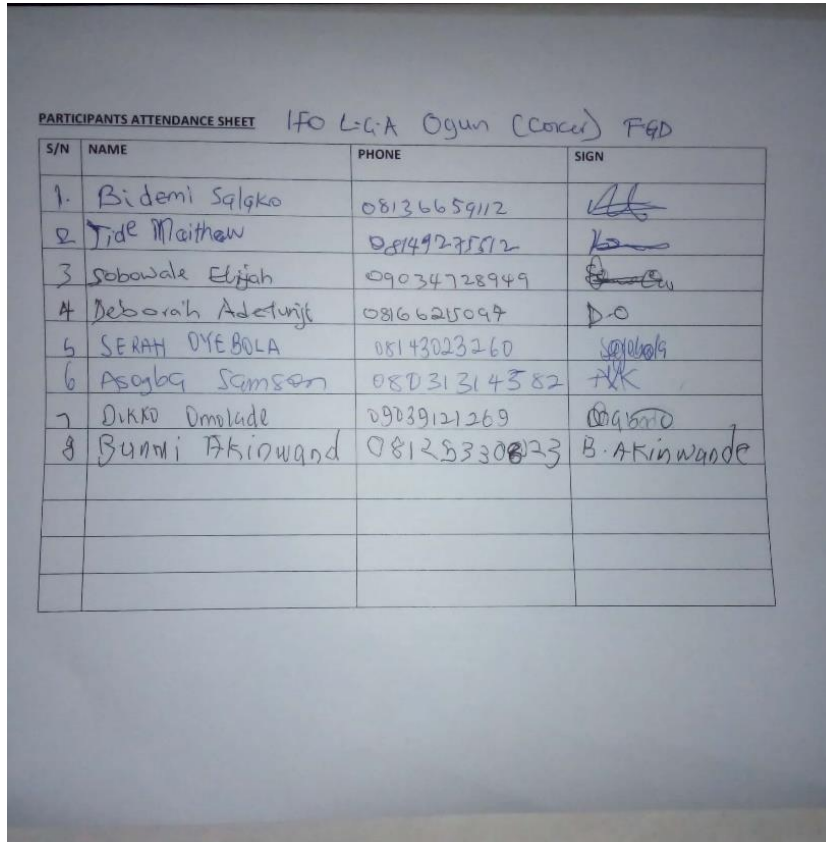 PARTICIPANTS ATTENDANCE SHEET IFO L.G.A Ogun FGD
S/N NAME PHONE SIGN
1. Bidemi Salako 08136659112
2 Jide Maithew 08149275512
3 Sobowale Elijah 09034728949
4 Deborah Adetunji 08166215097 D.O
5 SERAH OYEBOLA 08143023260
6 Asogba Samson 08031314582
7 DIKKO Omolade 09039121269
8 Bunmi Akinwand 08125330823 B. Akinwande